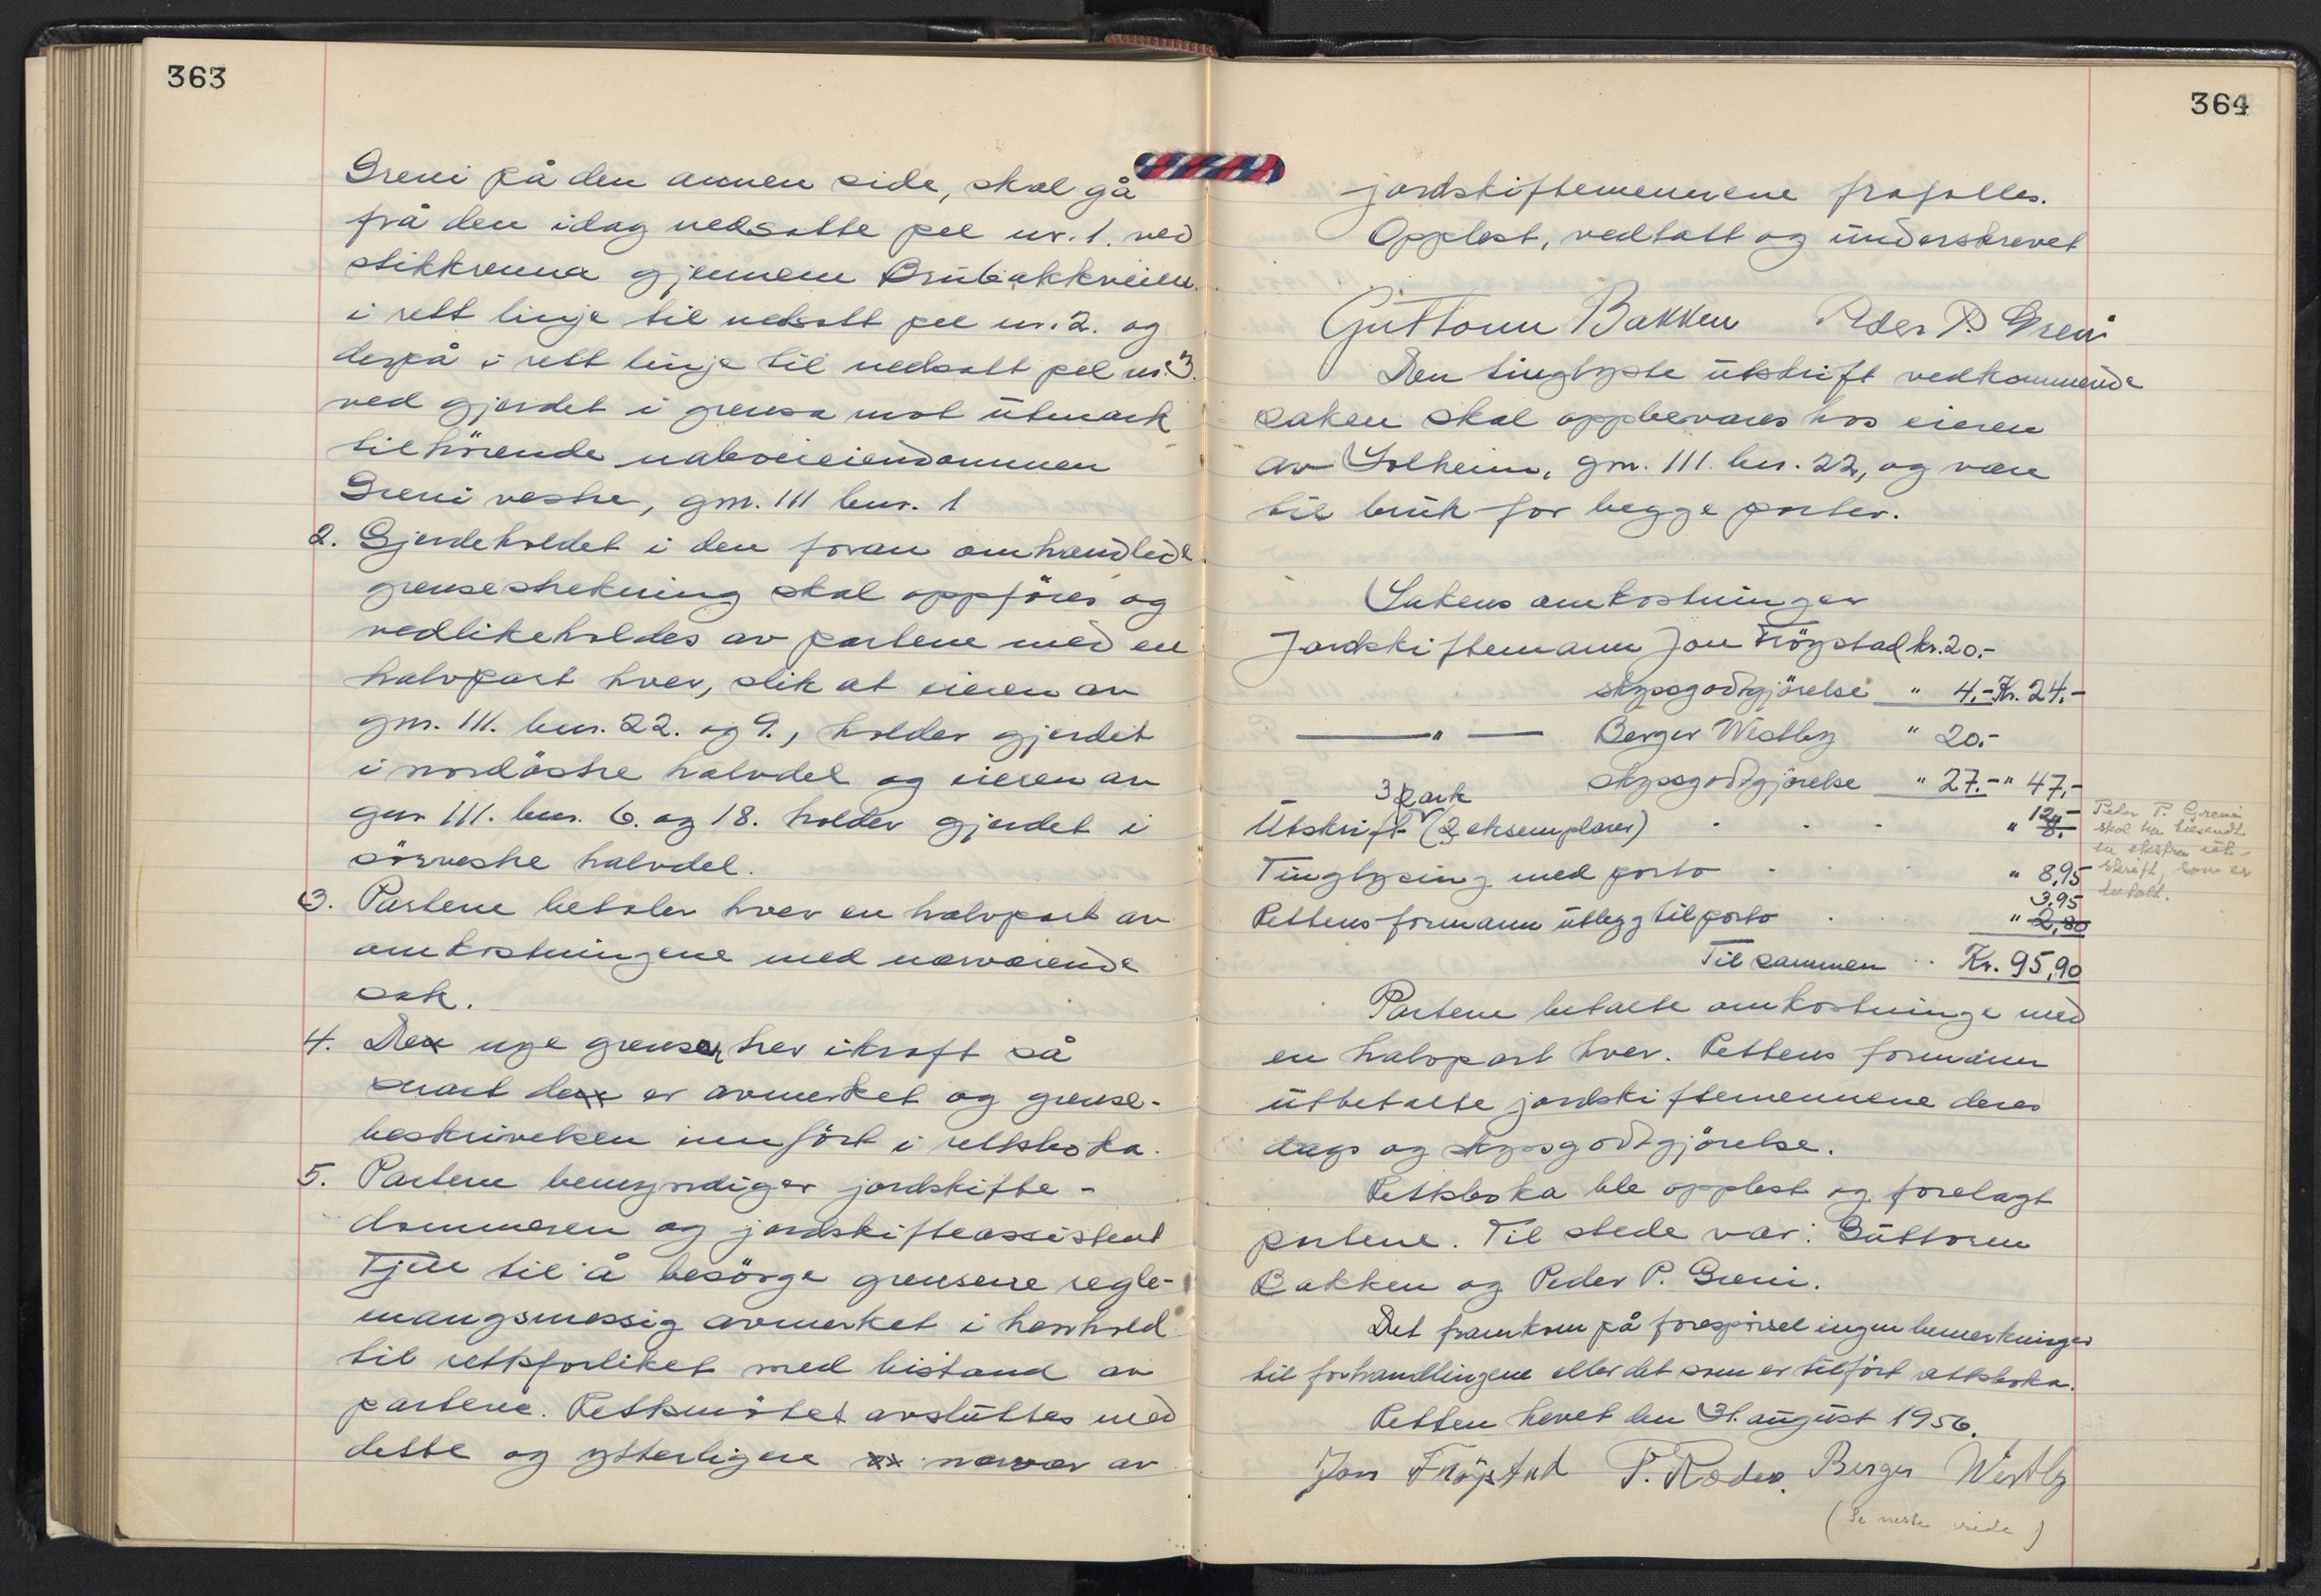 363
Greni på den annen side, skal gå
frå den idag nedsatte pel nr. 1. ved
stikkrenna gjennem Brubakkveien.
i rett linje til nedsatt pel nr. 2. og
derpå i rett linje til nedsatt pel nr. 3.
ved gjerdet i grensa mot utmark
tilhörende naboeieiendommen
Greni vestre, gnr. 111 bnr. 1
2. Gjerdeholdet i den foran omhandlede
grensestrekning skal oppföres og
vedlikeholdes av partene med en
halvpart hver, slik at eieren av
gnr. 111. bnr. 22. og 9., holder gjerdet
i nordöstre halvdel og eieren av
gnr 111. bnr. 6. og 18. holder gjerdet i
sörvestre halvdel.
3. Partene betaler hver en halvpart av
omkostningene med nærværende
sak.
4. De nye grenser trer ikraft så
snart de er avmerket og grense-
beskrivelsen innfört i rettsboka.
5. Partene bemyndiger jordskifte-
dommeren og jordskifteassistent
Tjele til å besörge grensene regle-
mangsmessig avmerket i henhold
til rettsforliket med bistand av
partene. Rettsmötet avsluttes med
dette og ytterligere nærvær av
364
jordskiftemennene frafalles.
Opplest, vedtatt og underskrevet
Guttorm Bakken Peder P. Greni
Den tinglyste utskrift vedkommende
saken skal oppbevares hos eieren
av Solheim, gnr. 111. bnr. 22, og være
til bruk for begge parter.
Sakens omkostninger
Jordskiftemann Jon Fröystad kr. 20.-
skyssgodtgjörelse " 4,- Kr. 24,-
—"— Berger Westby " 20.-
skyssgodtgjörelse " 27.- " 47,-
3 ark
Utskrift (2 eksemplarer) . . . " 8.- 12,-
Tinglysing med porto . . " 8,95
3,95
Rettens formann utlegg til porto . " 2,80
Tilsammen .. Kr. 95,90
Peder P. Greni
skal ha tilsendt
en ekstra ut-
skrift, som er
betalt.
Partene betalte omkostninge med
en halvpart hver. Rettens formann
utbetalte jordskiftemennene deres
dags og skyssgodtgjörelse.
Rettsboka ble opplest og forelagt
partene. Til stede var: Guttorm
Bakken og Peder P. Greni.
Det framkom på forespörsel ingen bemerkninger
til forhandlingene eller det som er tilfört rettsboka.
Retten hevet den 31. august 1956.
Jon Fröystad P. Roder. Berger Westby
(Se neste side)